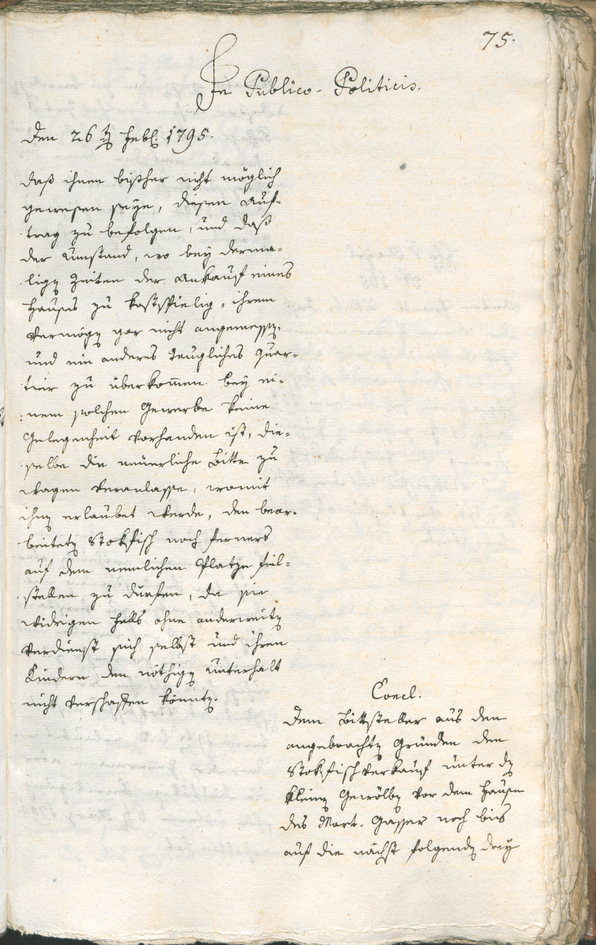 75.
In Publico-Politicis.
Den 26 Febr. 1795.
daß ihnen bishher nicht möglich
gewesen seye, diesen Auf-
trag zu befolgen, und daß
der Umstand, wo bey derma-
ligen Zeiten der Ankauf eines
Hauses zu kostspielig, ihrem
Vermögen gar nicht angemessen,
und ein anderes taugliches Quar-
tier zu überkommen bey ei-
nem solchen Gewerbe keine
Gelegenheit vorhanden ist, die-
selbe die neuerliche Bitte zu
wagen veranlasse, womit
ihnen erlaubet werde, den bear-
beiteten Stokfisch noch ferners
auf dem nemlichen Platze feil-
stellen zu därfen, da sie
widrigen Falls ohne anderweiten
Verdienst sich selbst und ihren
Kindern den nöthigen Unterhalt
nicht verschaffen könnten.
Concl.
Dem Bittsteller aus den
angebrachten Gründen den
Stokfischverkauf unter den
kleinen Gewölben vor dem Hause
des Mart. Gasser noch bis
auf die nächst folgenden drey